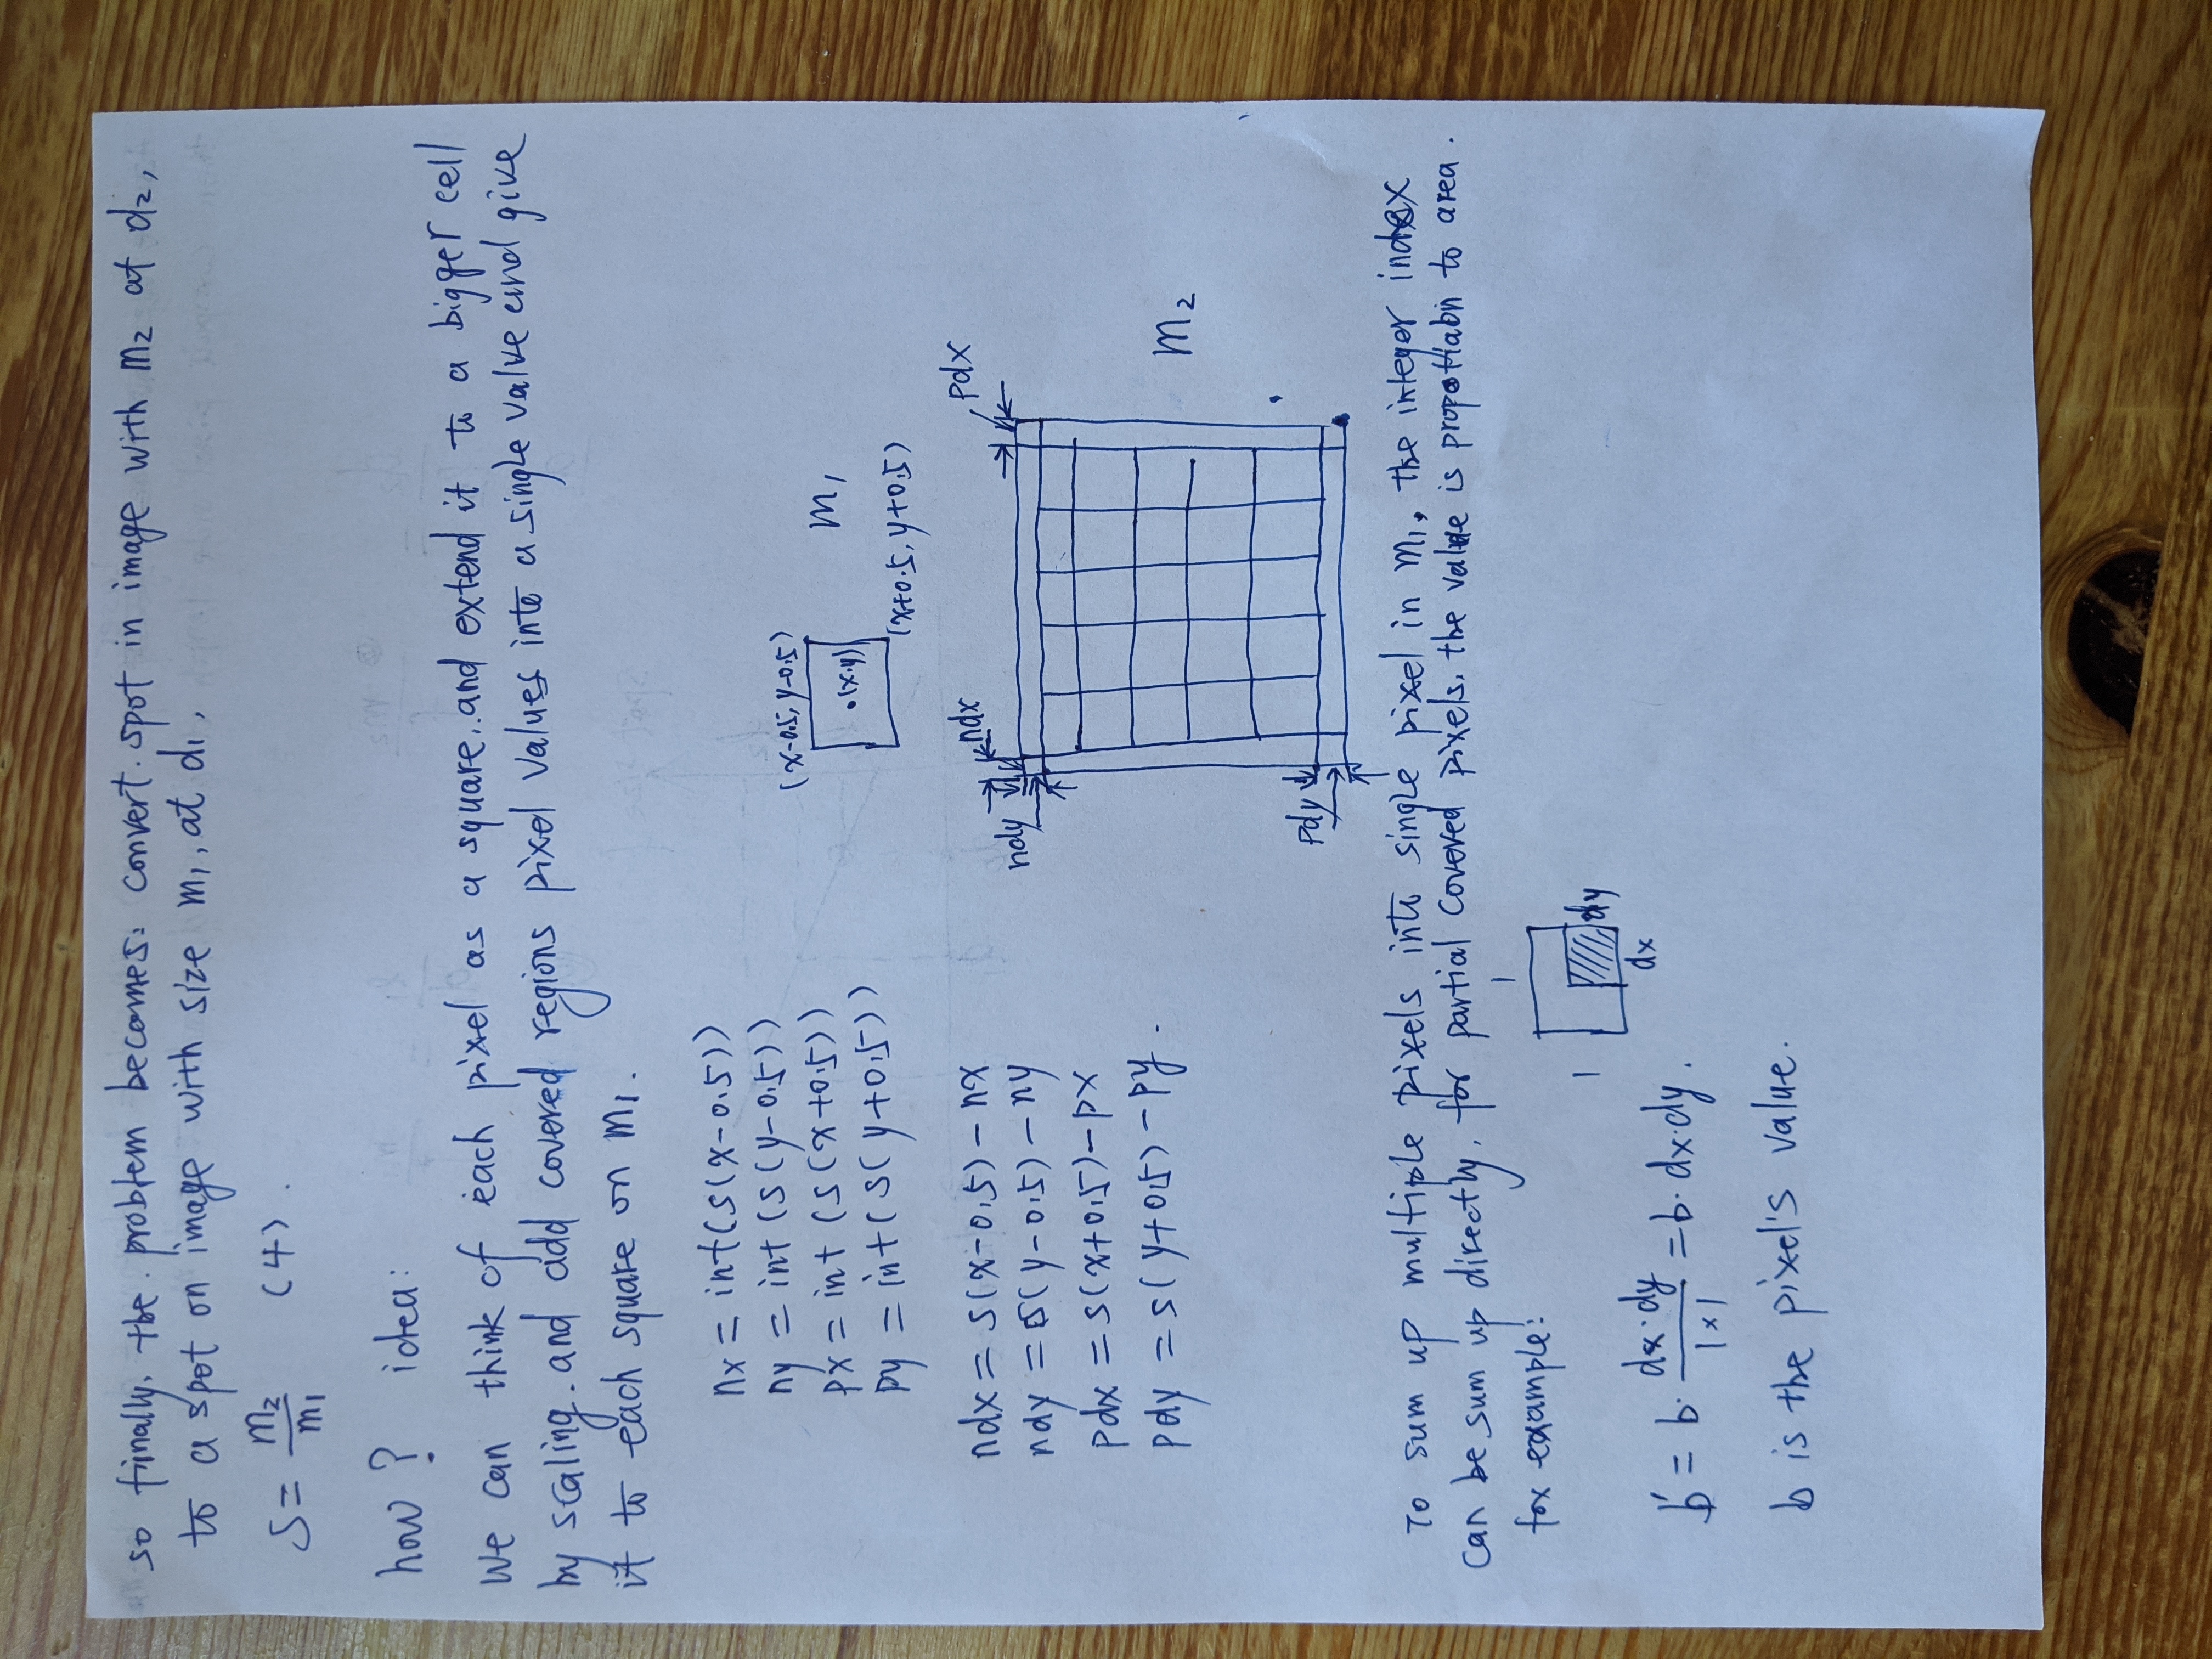 so finally, the problem becomes: convert spot in image with m₂ at d₂,
to a spot on image with size m₁, at d₁,
S = m₂/m₁ (4).
how? idea:
we can think of each pixel as a square. and extend it to a bigger cell
by scaling. and add covered regions pixel values into a single value and give
it to each square on m₁.
nx = int(s(x-0.5))
ny = int(s(y-0.5))
px = int(s(x+0.5))
py = int(s(y+0.5))
(x-0.5, y-0.5)
m₁
.(x.y)
(x+0.5, y+0.5)
ndx = s(x-0.5) - nx
ndy = s(y-0.5) - ny
pdx = s(x+0.5) - px
pdy = s(y+0.5) - py.
ndx
pdx
ndy
m₂
pdy
To sum up multiple pixels into single pixel in m₁, the integer index
can be sum up directly, for partial covered pixels, the value is to area.
for example:
1
1
dy
dx
b' = b · dx·dy/1×1 = b· dx·dy.
b is the pixel's value.